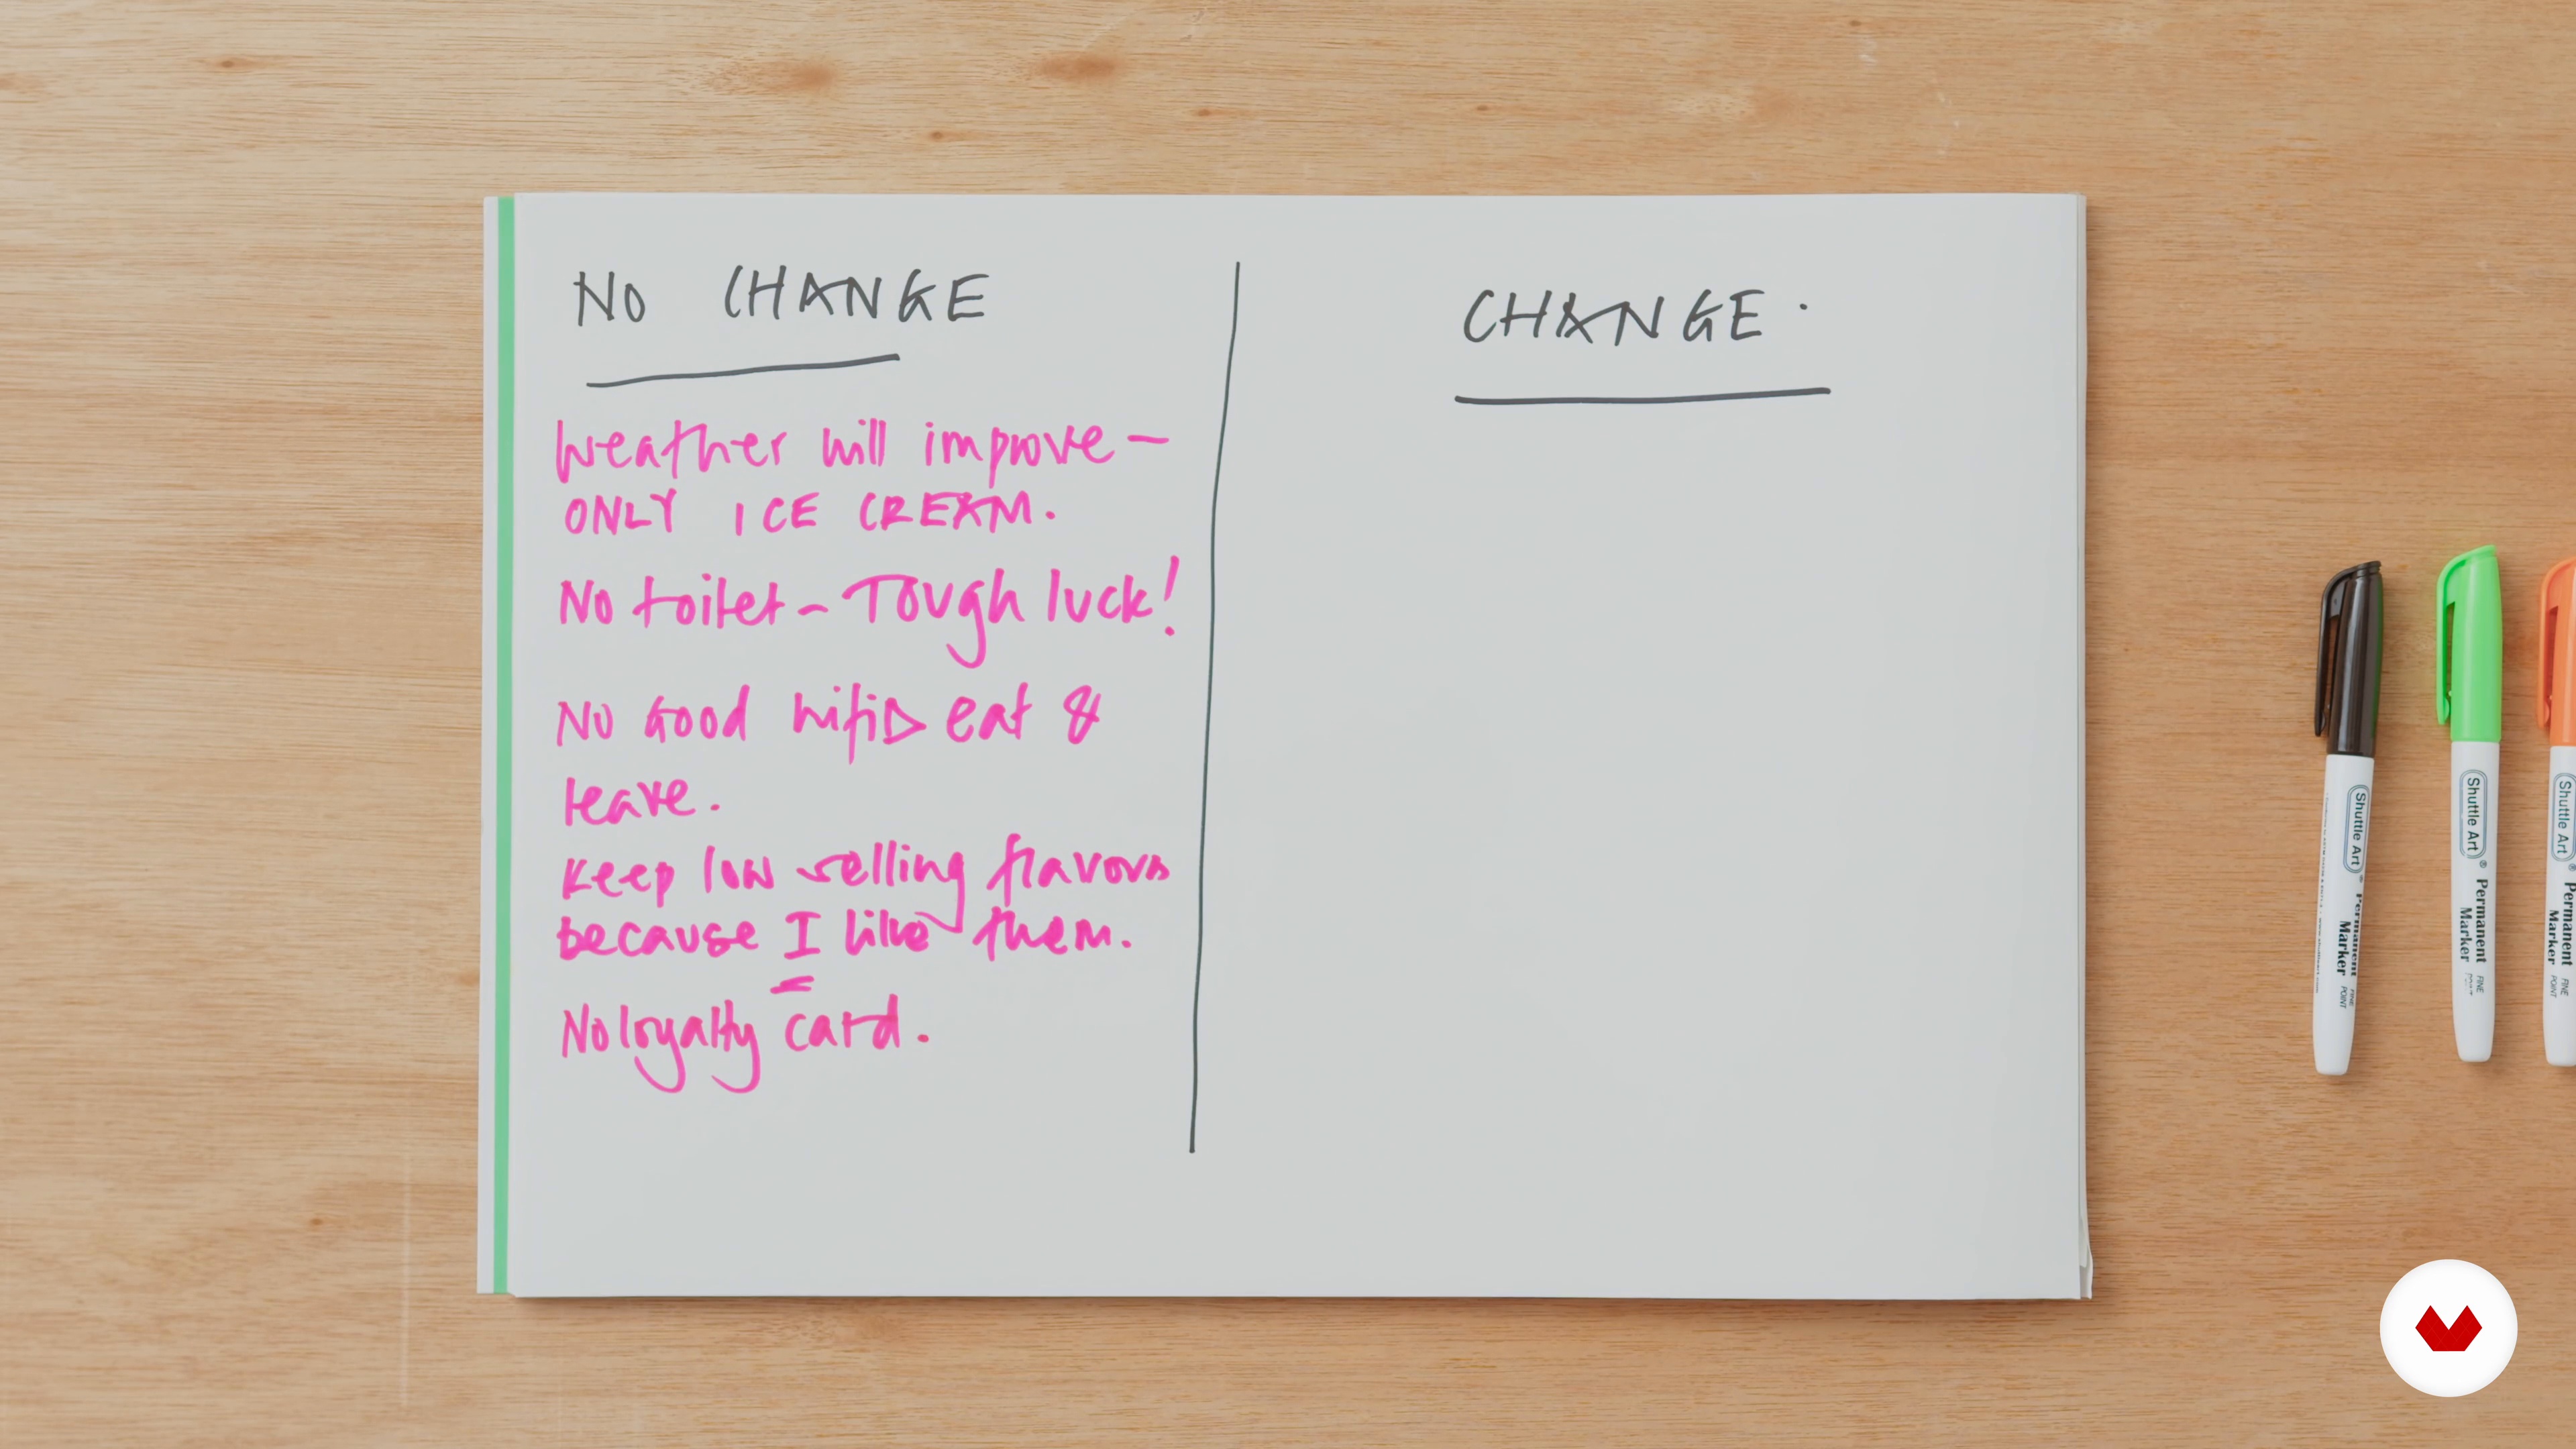 NO CHANGE
Weather will improve –
ONLY ICE CREAM.
No toilet – Tough luck!
No Good wifi▷ eat &
leave.
Keep low selling flavors
because I like them.
No loyalty card.
CHANGE.
Shuttle Art
® Permanent
Marker
FINE
POINT
Shuttle Art
® Permanent
Marker
FINE
POINT
Shuttle Art
® Permanent
Marker
FINE
POINT